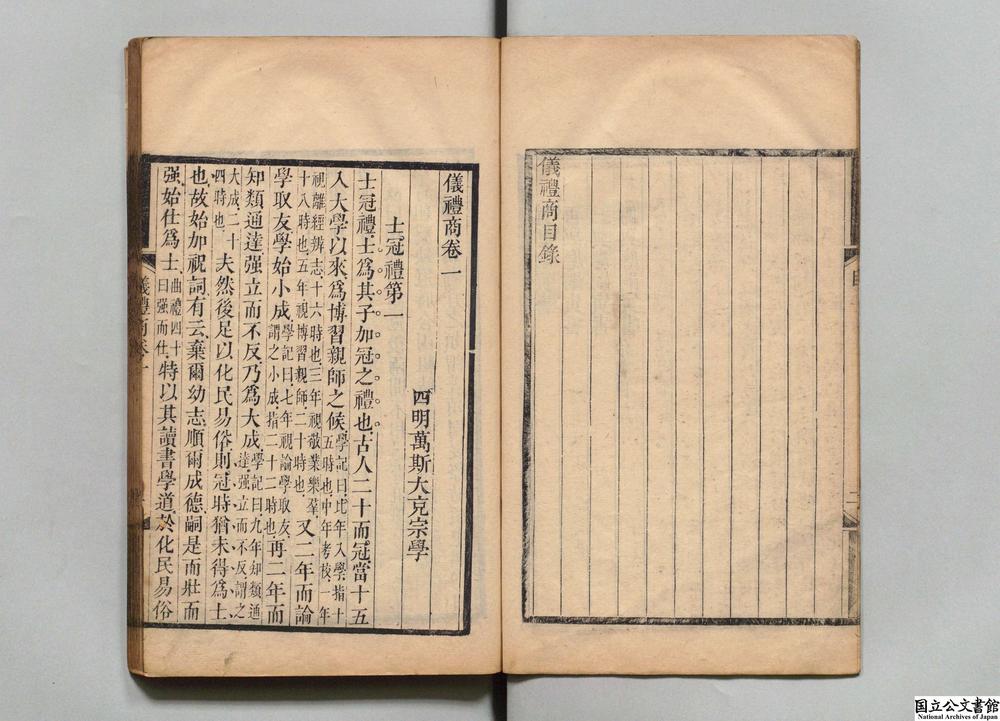 儀禮商目錄
儀禮商卷一
四明萬斯大充宗學
士冠禮第一
士冠禮士爲其子加冠之禮也古人二十而冠當十五
入大學以來爲博習親師之候學記曰比年入學指十五時也中年考校一年
視離經辨志十六時也三年視敬業樂羣十八時也五年視博習親師二十時也又二年而論
學取友學始小成學記曰七年視論學取友謂之小成指二十二時也再二年而
知類通達强立而不反乃爲大成學記曰九年知類通達强立而不反謂之
大成二十四時也夫然後足以化民易俗則冠時猶未得爲士
也故始加祝詞有云棄爾幼志順爾成德嗣是而壯而
强始仕爲士曲禮四十曰强而仕特以其讀書學道於化民易俗
儀禮商卷一
国立公文書館
National Archives of Japan